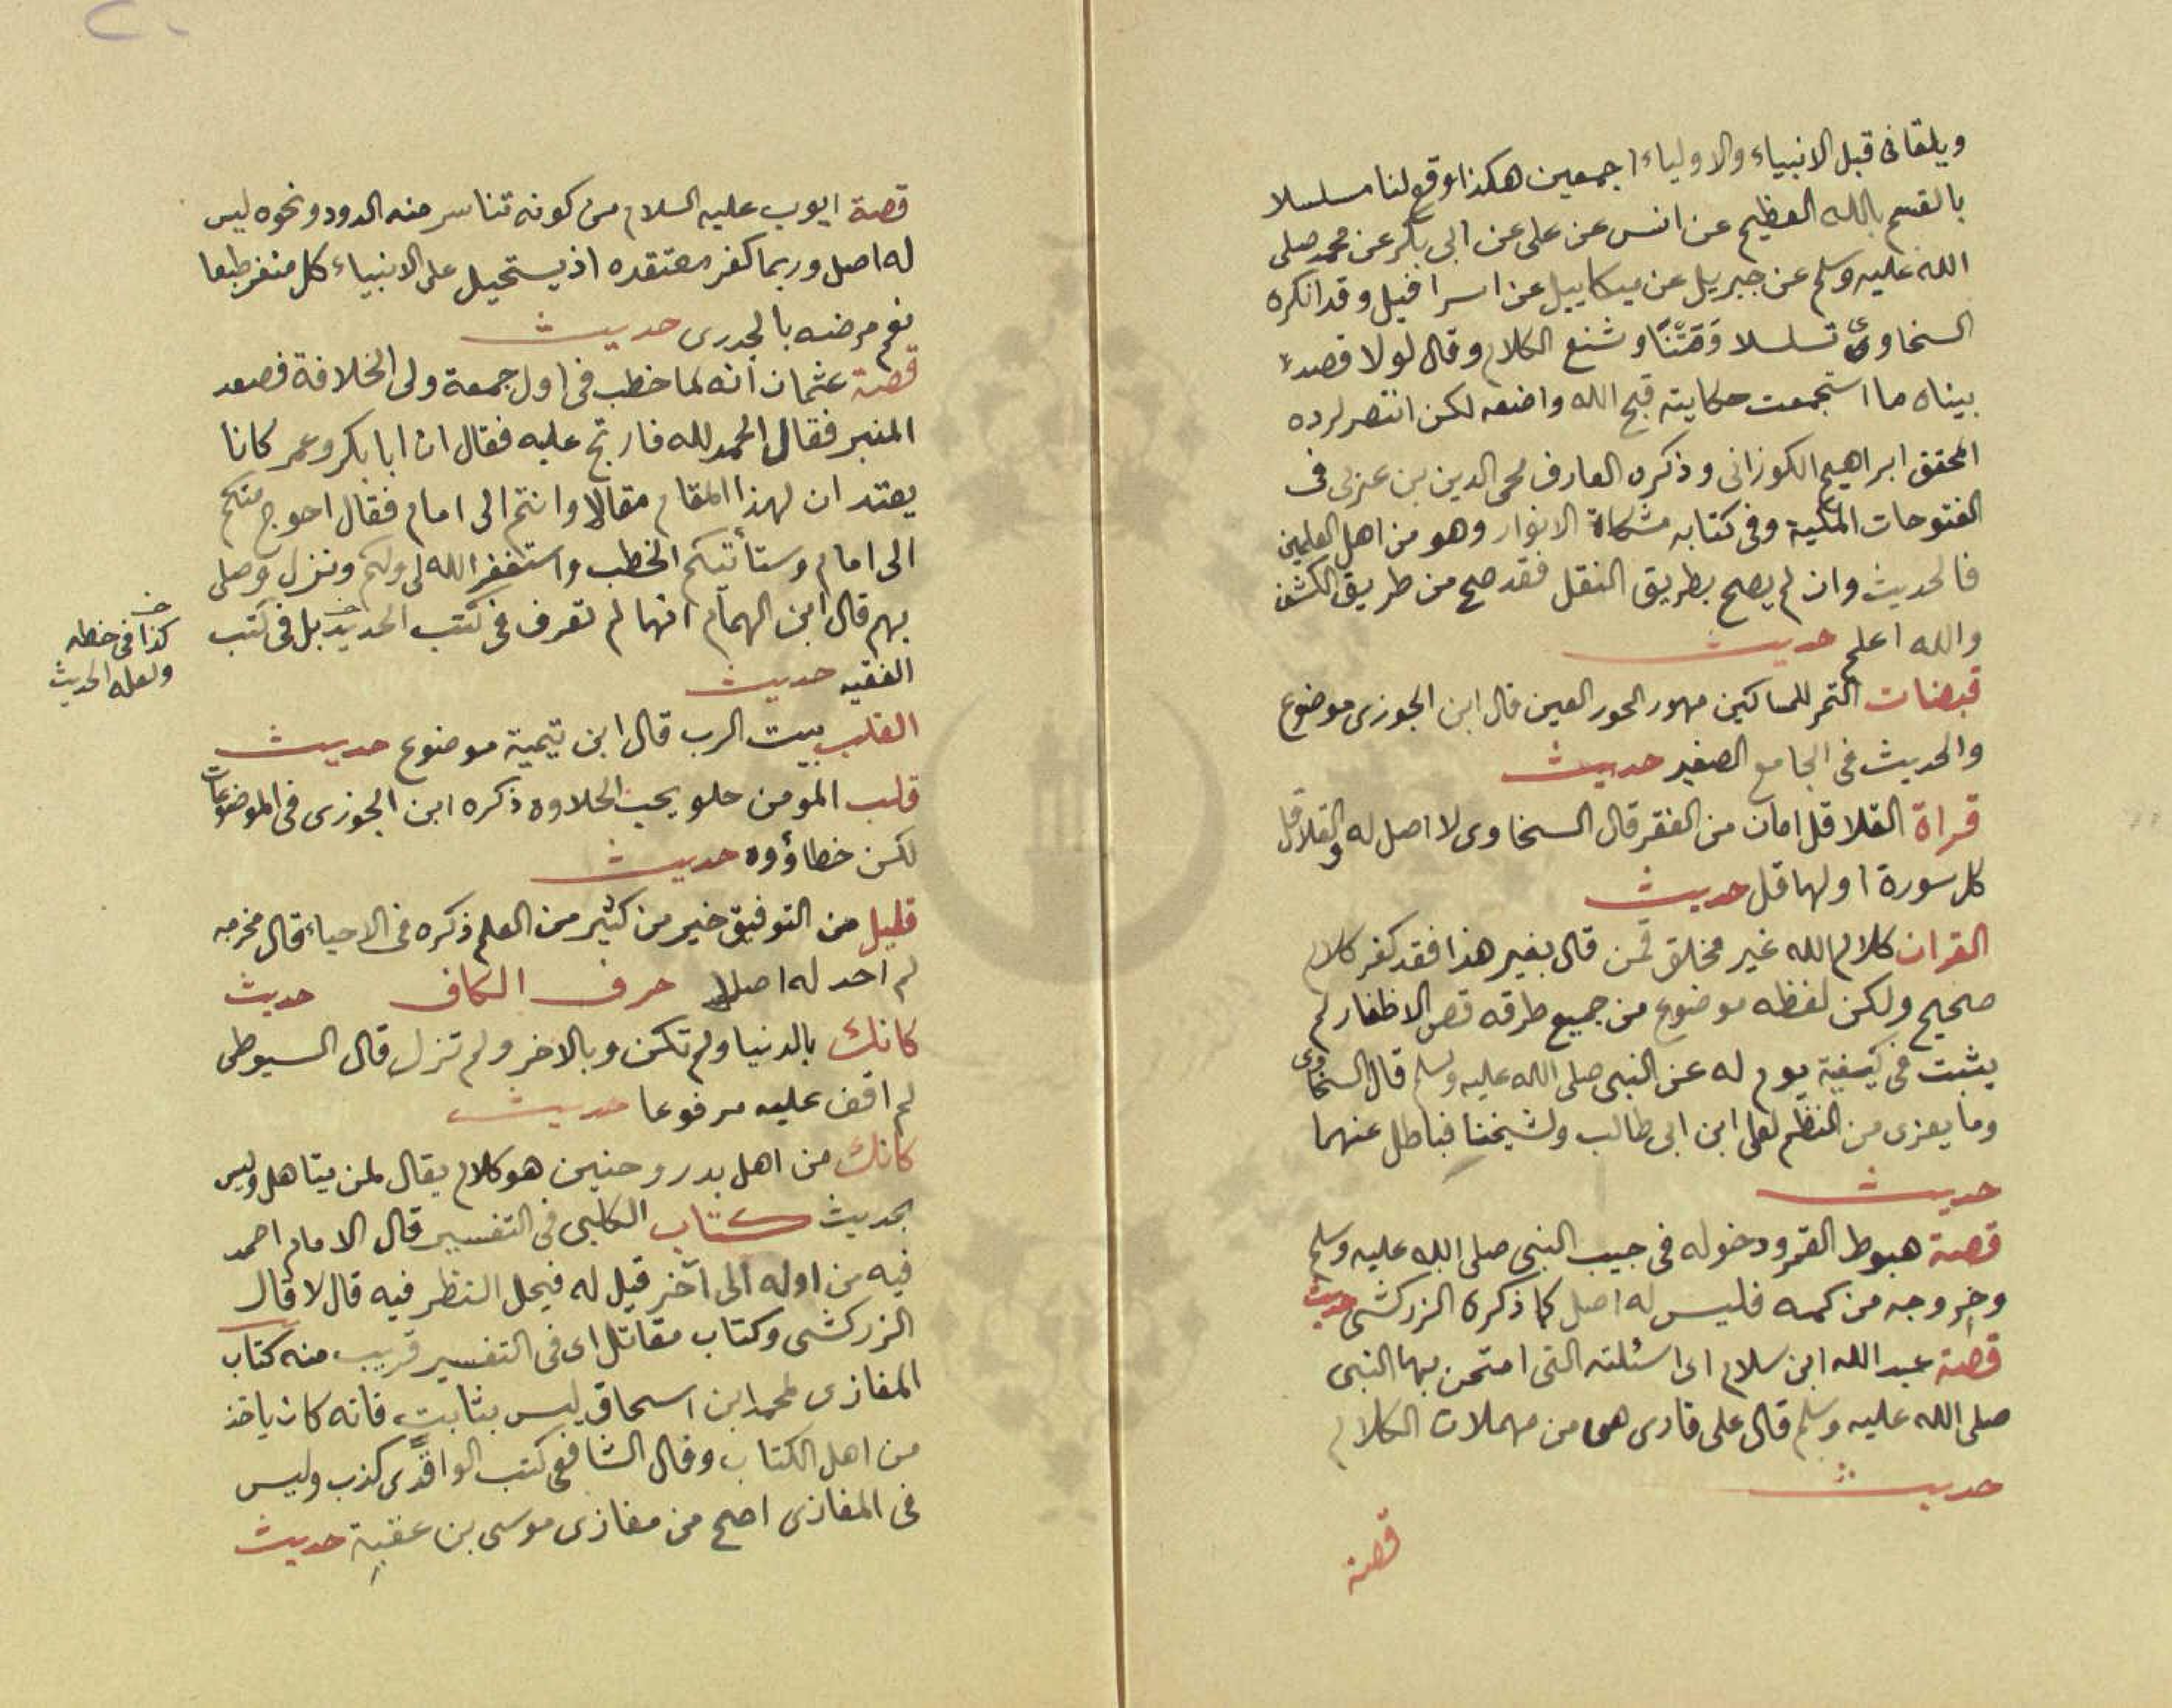 ويلقانى قبل الانبياء والاولياء اجمعين هكذا وقع لنا مسلسلا
بالقسم بالله العظيم عن انس عن على عن ابى بكر عن محمد صلى
الله عليه وسلم عن جبريل عن ميكاييل عن اسرافيل وقد انكره
السخاوى تسلسلا ومتنا وشنع الكلام وقال لولا قصد
بيناه ما استجمعت حكايته قبح الله واضعه لكن انتصر لرده
المحقق ابراهيم الكوزانى وذكره العارف محى الدين بن عربى فى
الفتوحات المكية وفى كتابه مشكاة الانوار وهو من اهل العلمين
فالحديث وان لم يصح بطريق النقل فقد صح من طريق الكشف
والله اعلم حديث
قبضات التمر للمساكين مهور الحور العين قال ابن الجوزى موضوع
والحديث فى الجامع الصغير حديث
قراة القلاقل امان من الفقر قال السخاوى لا اصل له والقلاقل
كل سورة اولها قل حديث
القران كلام الله غير مخلق فمن قال بغير هذا فقد كفر كلام
صحيح ولكن لفظه موضوع من جميع طرقه قص الاظفار لم
يثبت فى كيفية يوم له عن النبى صلى الله عليه وسلم قال السخاوى
وما يعزى من النظم لعلى ابن ابى طالب ولشيخنا فباطل عنهما
حديث
قصة هبوط القمر ودخوله فى جيب النبى صلى الله عليه وسلم
وخروجه من كمه فليس له اصل كما ذكره الزركشى حديث
قصة عبد الله ابن سلام اى اسئلته التى امتحن بها النبى
صلى الله عليه وسلم قال على قارى هى من مهملات الكلام
حديث
قصة
قصة ايوب عليه السلام من كونه تناسر منه الدود ونحوه ليس
له اصل وربما كفر معتقده اذ يستحيل على الانبياء كل منفر طبعا
نعم مرضه بالجدرى حديث
قصة عثمان انه لما خطب فى اول جمعة ولى الخلافة فصعد
المنبر فقال الحمد لله فارتج عليه فقال ان ابا بكر وعمر كانا
يعتدان لهذا المقام مقالا وانتم الى امام فقال احوج منكم
الى امام وستأتيكم الخطب واستغفر الله لى ولكم ونزل وصلى
بهم قال ابن الهمام انها لم تعرف فى كتب الحديد بل فى كتب
الفقيه حديث
كذا فى خطه
ولعله الحديث
القلب بيت الرب قال ابن تيمية موضوع حديث
قلب المومن حلو يحب الحلاوه ذكره ابن الجوزى فى الموضوعات
لكن خطاؤوه حديث
قليل من التوفيق خير من كثير من العلم ذكره فى الاحياء قال مخرجه
لم احد له اصلا حرف الكاف حديث
كانك بالدنيا ولم تكن وبالاخر ولم تزل قال السيوطى
لم اقف عليه مرفوعا حديث
كانك من اهل بدر وحنين هو كلام يقال لمن يتاهل وليس
بحديث كتاب الكلبى فى التفسير قال الامام احمد
فيه من اوله الى آخر قيل له فيحل النظر فيه قال لا قال
الزركشى وكتاب مقاتل اى فى التفسير قريب منه كتاب
المغازى لمحمد ابن اسحاق ليس بثابت فانه كان ياخذ
من اهل الكتاب وقال الشافعى كتب الواقدى كذب وليس
فى المغازى اصح من مغازى موسى بن عقبة حديث